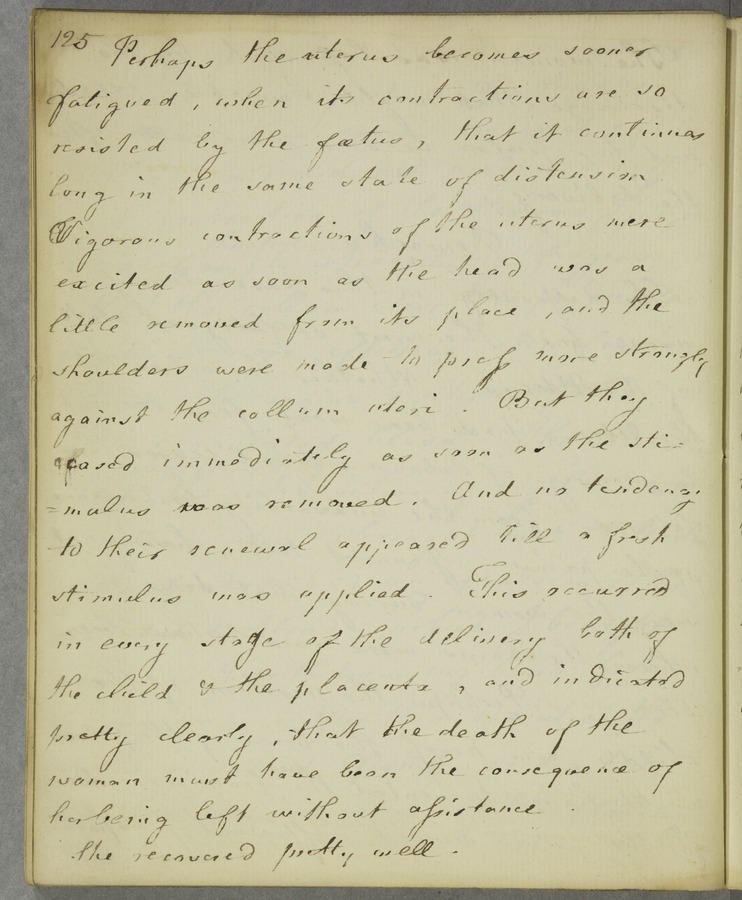 125 Perhaps the uterus becomes sooner
fatigued, when its contractions are so
resisted by the fœtus, that it continues
long in the same state of distension
Vigorous contractions of the uterus were
excited as soon as the head was a
little removed from its place, and the
shoulders were made to press more strongly
against the collum uteri. But they
ceased immediately as soon as the sti=
=mulus was removed. And no tendency
to their renewal appeared till a fresh
stimulus was applied. This occurred
in every stage of the delivery both of
the child & the placenta, and indicated
pretty clearly, that the death of the
woman must have been the consequence of
her being left without assistance.
She recovered pretty well.